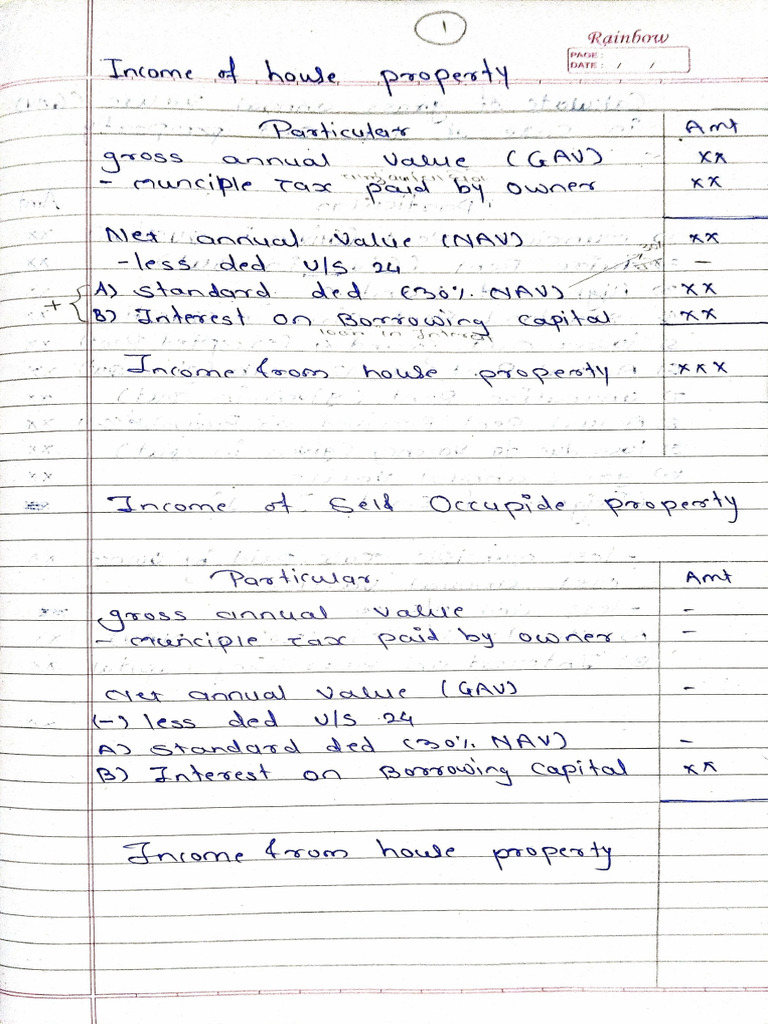 1
Rainbow
PAGE:
DATE: / /
Income of house property
Particular Amt
gross annual value (GAV) xx
- munciple tax paid by owner xx
Net annual value (NAV) xx
- less ded U/S. 24 -
A) Standard ded (30% NAV) xx
+ { B) Interest on Borrowing capital xx
loan in Interest
Income from house property. xxx
Income of Self Occupide property
Particular. Amt
gross annual value -
- munciple tax paid by owner. -
Net annual value (GAV) -
(-) less ded U/S 24
A) Standard ded (30% NAV) -
B) Interest on Borrowing capital xx
Income from house property